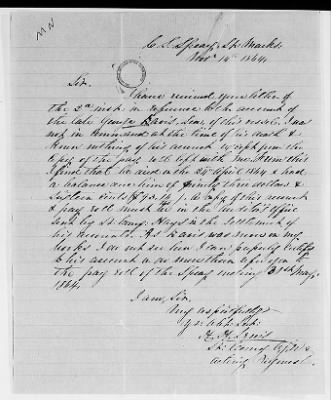 C. S. Spray, St. Marks.
Nov. 14th 1864
Sir.
I have received your letter of
the 2d inst. in reference to the account
of the late George Davis, Sea. of this vessel. I was
not in command at the time of his death &
know nothing of his account except from the
copy of the pay roll left with me. From this
I find that he died on the 24th April 1864 & had
a balance due him of seventy three dollars &
sixteen cents. A copy of this account
& pay roll must be in the Auditor's Office
sent by
his accounts. As Davis was never on my
books I do not see how I can properly certify
to his account
the pay roll of the Spray ending 31st
1864.
I am, Sir,
Very respectfully
Yr. Obt. Svt.
H. H. Lewis